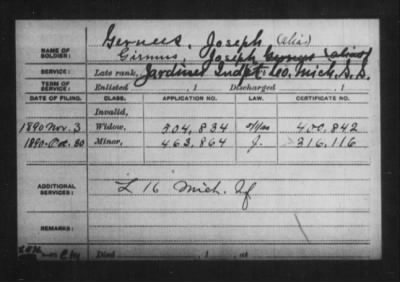 Gernees, Joseph (alias)
NAME OF SOLDIER: Girnus, Joseph Gernys (alias)
SERVICE: Late rank, Jardines Indpt Co. Mich. S. S.
TERM OF SERVICE: Enlisted , 1 Discharged , 1
DATE OF FILING. CLASS. APPLICATION NO. LAW. CERTIFICATE NO.
Invalid,
1890 Nov. 3 Widow, 504,834 400,842
1890 Oct. 30 Minor, 463,864 J. 316,116
ADDITIONAL SERVICES: L 16 Mich. Inf
REMARKS:
Died , 1 , at